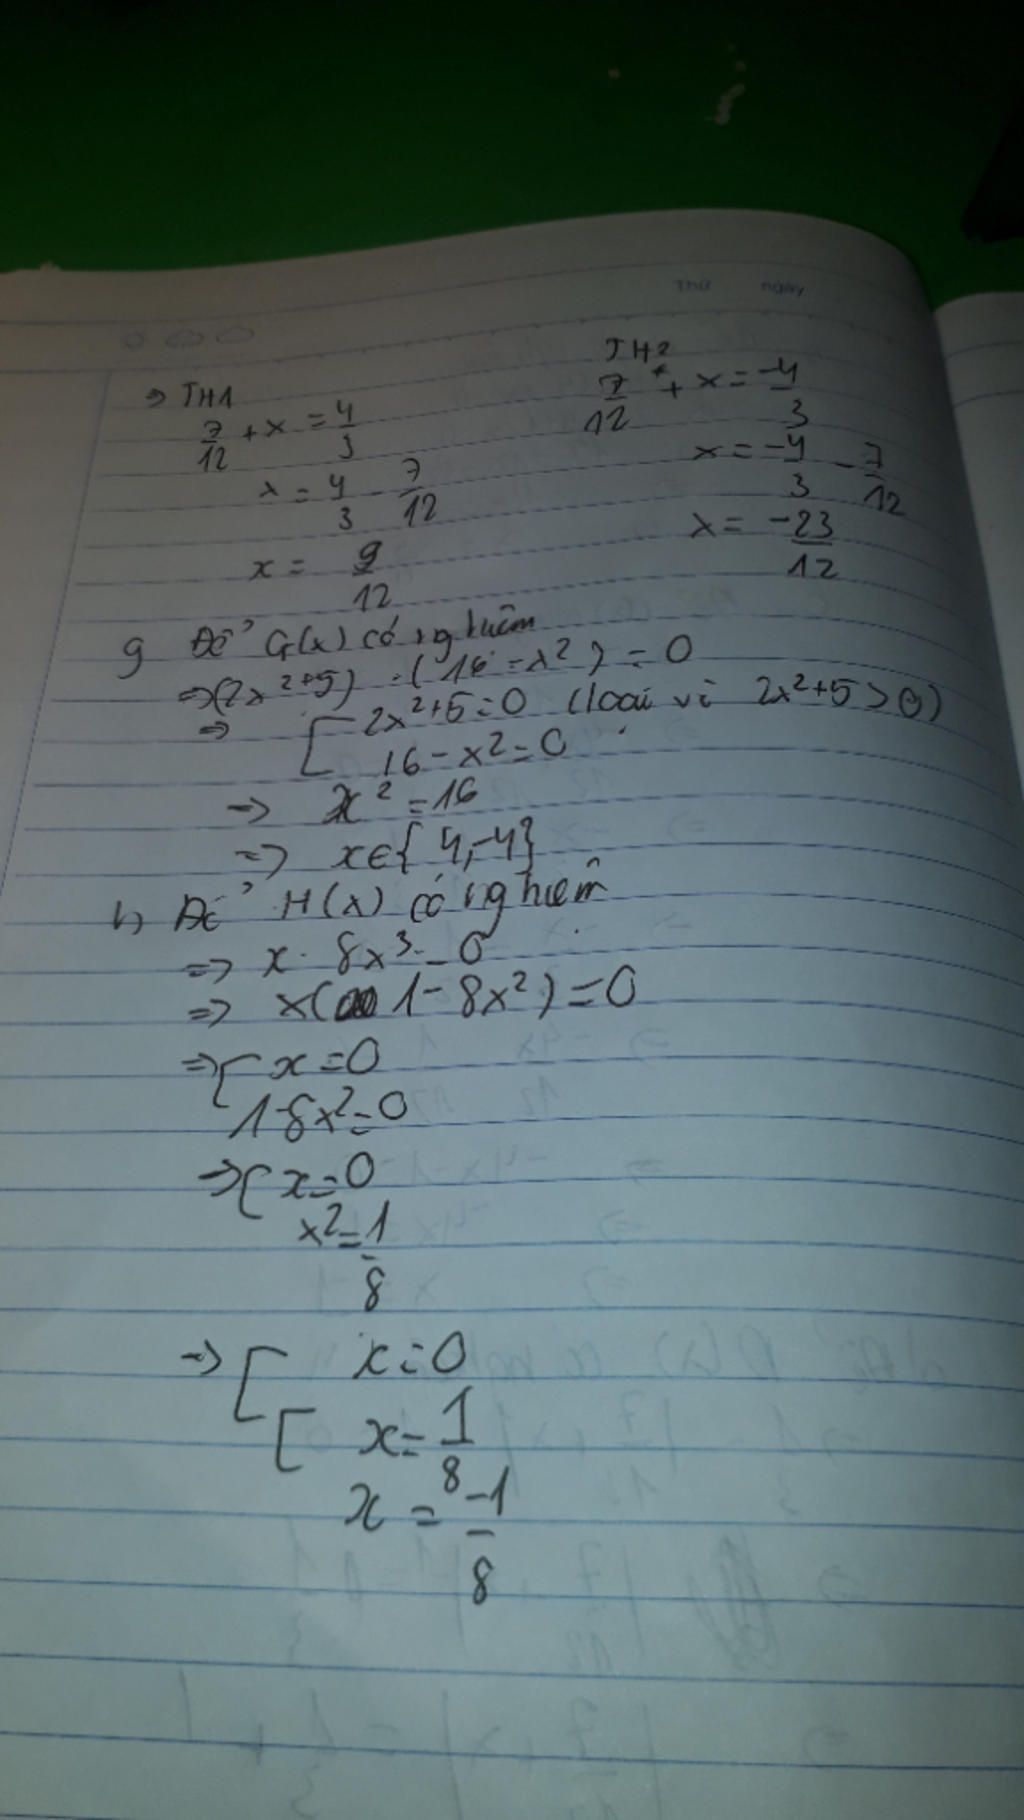 Thứ ngày
⇒ TH1
7/12 + x = 4/3
x = 4/3 - 7/12
x = 9/12
TH2
7/12 + x = -4/3
x = -4/3 - 7/12
x = -23/12
g Để G(x) có nghiệm
⇒ (2x²+5) . (16 - x²) = 0
⇒ [ 2x²+5=0 (loại vì 2x²+5>0)
16 - x² = 0
⇒ x² = 16
⇒ x∈{4,-4}
h) Để H(x) có nghiệm
⇒ x - 8x³ = 0
⇒ x(1 - 8x²) = 0
⇒ [ x = 0
1-8x²=0
⇒ [ x=0
x²=1/8
⇒ [ x=0
[ x = 1/8
x = -1/8